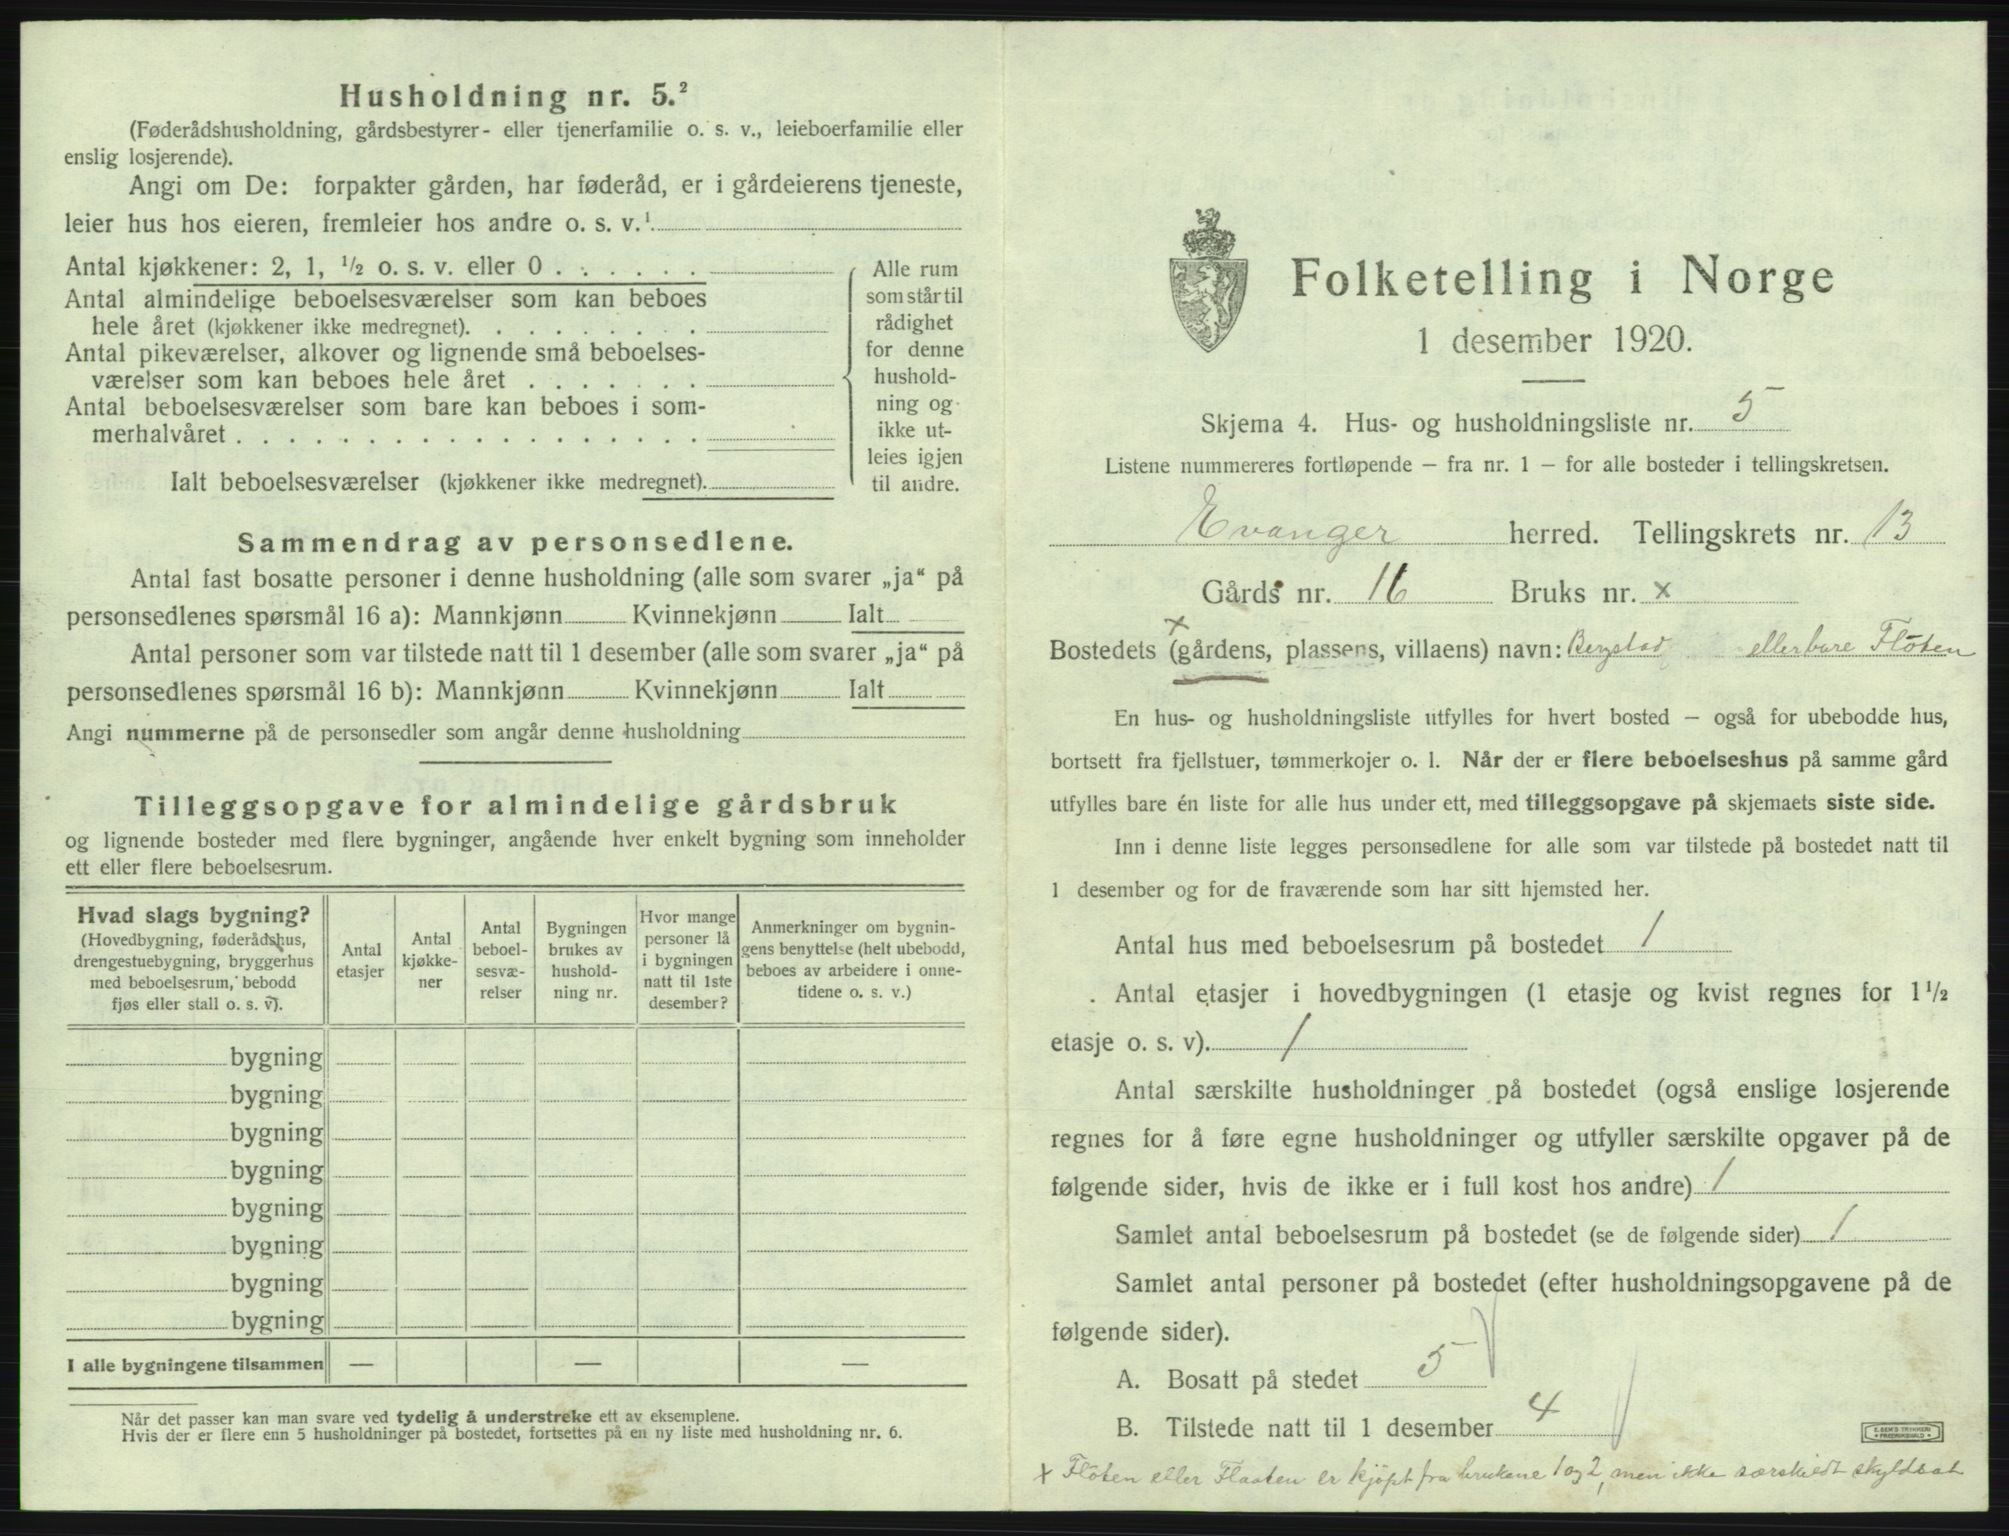 Husholdning nr. 5.²
(Føderådshusholdning, gårdsbestyrer- eller tjenerfamilie o. s. v., leieboerfamilie eller
enslig losjerende).
Angi om De: forpakter gården, har føderåd, er i gårdeierens tjeneste,
leier hus hos eieren, fremleier hos andre o. s. v.¹
Antal kjøkkener: 2, 1, ½ o. s. v. eller 0 . . . . . .
Antal almindelige beboelsesværelser som kan beboes
hele året (kjøkkener ikke medregnet). . . . . . . . .
Antal pikeværelser, alkover og lignende små beboelses-
værelser som kan beboes hele året . . . . . . .
Antal beboelsesværelser som bare kan beboes i som-
merhalvåret . . . . . . . . . . . . . . . . .
Ialt beboelsesværelser (kjøkkener ikke medregnet).
Alle rum
som står til
rådighet
for denne
hushold-
ning og
ikke ut-
leies igjen
til andre.
Sammendrag av personsedlene.
Antal fast bosatte personer i denne husholdning (alle som svarer „ja“ på
personsedlenes spørsmål 16 a): Mannkjønn Kvinnekjønn Ialt
Antal personer som var tilstede natt til 1 desember (alle som svarer „ja“ på
personsedlenes spørsmål 16 b): Mannkjønn Kvinnekjønn Ialt
Angi nummerne på de personsedler som angår denne husholdning
Tilleggsopgave for almindelige gårdsbruk
og lignende bosteder med flere bygninger, angående hver enkelt bygning som inneholder
ett eller flere beboelsesrum.
Hvad slags bygning?
(Hovedbygning, føderådshus,
drengestuebygning, bryggerhus
med beboelsesrum, bebodd
fjøs eller stall o. s. v).
Antal
etasjer
Antal
kjøkke-
ner
Antal
beboel-
sesvæ-
relser
Bygningen
brukes av
hushold-
ning nr.
Hvor mange
personer lå
i bygningen
natt til 1ste
desember?
Anmerkninger om bygnin-
gens benyttelse (helt ubebodd,
beboes av arbeidere i onne-
tidene o. s. v.)
bygning
bygning
bygning
bygning
bygning
bygning
bygning
bygning
I alle bygningene tilsammen — — —
Når det passer kan man svare ved tydelig å understreke ett av eksemplene.
Hvis der er flere enn 5 husholdninger på bostedet, fortsettes på en ny liste med husholdning nr. 6.
Folketelling i Norge
1 desember 1920.
Skjema 4. Hus- og husholdningsliste nr. 5
Listene nummereres fortløpende – fra nr. 1 – for alle bosteder i tellingskretsen.
Evanger herred. Tellingskrets nr. 13
Gårds nr. 16 Bruks nr. x
Bostedets x (gårdens, plassens, villaens) navn: Bergstad eller bare Flöten
En hus- og husholdningsliste utfylles for hvert bosted – også for ubebodde hus,
bortsett fra fjellstuer, tømmerkojer o. l. Når der er flere beboelseshus på samme gård
utfylles bare én liste for alle hus under ett, med tilleggsopgave på skjemaets siste side.
Inn i denne liste legges personsedlene for alle som var tilstede på bostedet natt til
1 desember og for de fraværende som har sitt hjemsted her.
Antal hus med beboelsesrum på bostedet 1
Antal etasjer i hovedbygningen (1 etasje og kvist regnes for 1½
etasje o. s. v). 1
Antal særskilte husholdninger på bostedet (også enslige losjerende
regnes for å føre egne husholdninger og utfyller særskilte opgaver på de
følgende sider, hvis de ikke er i full kost hos andre) 1
Samlet antal beboelsesrum på bostedet (se de følgende sider) 1
Samlet antal personer på bostedet (efter husholdningsopgavene på de
følgende sider).
A. Bosatt på stedet 5
B. Tilstede natt til 1 desember 4
x Flöten eller Flaaten er kjöpt fra brukene 1 og 2, men ikke særskildt skyldsat